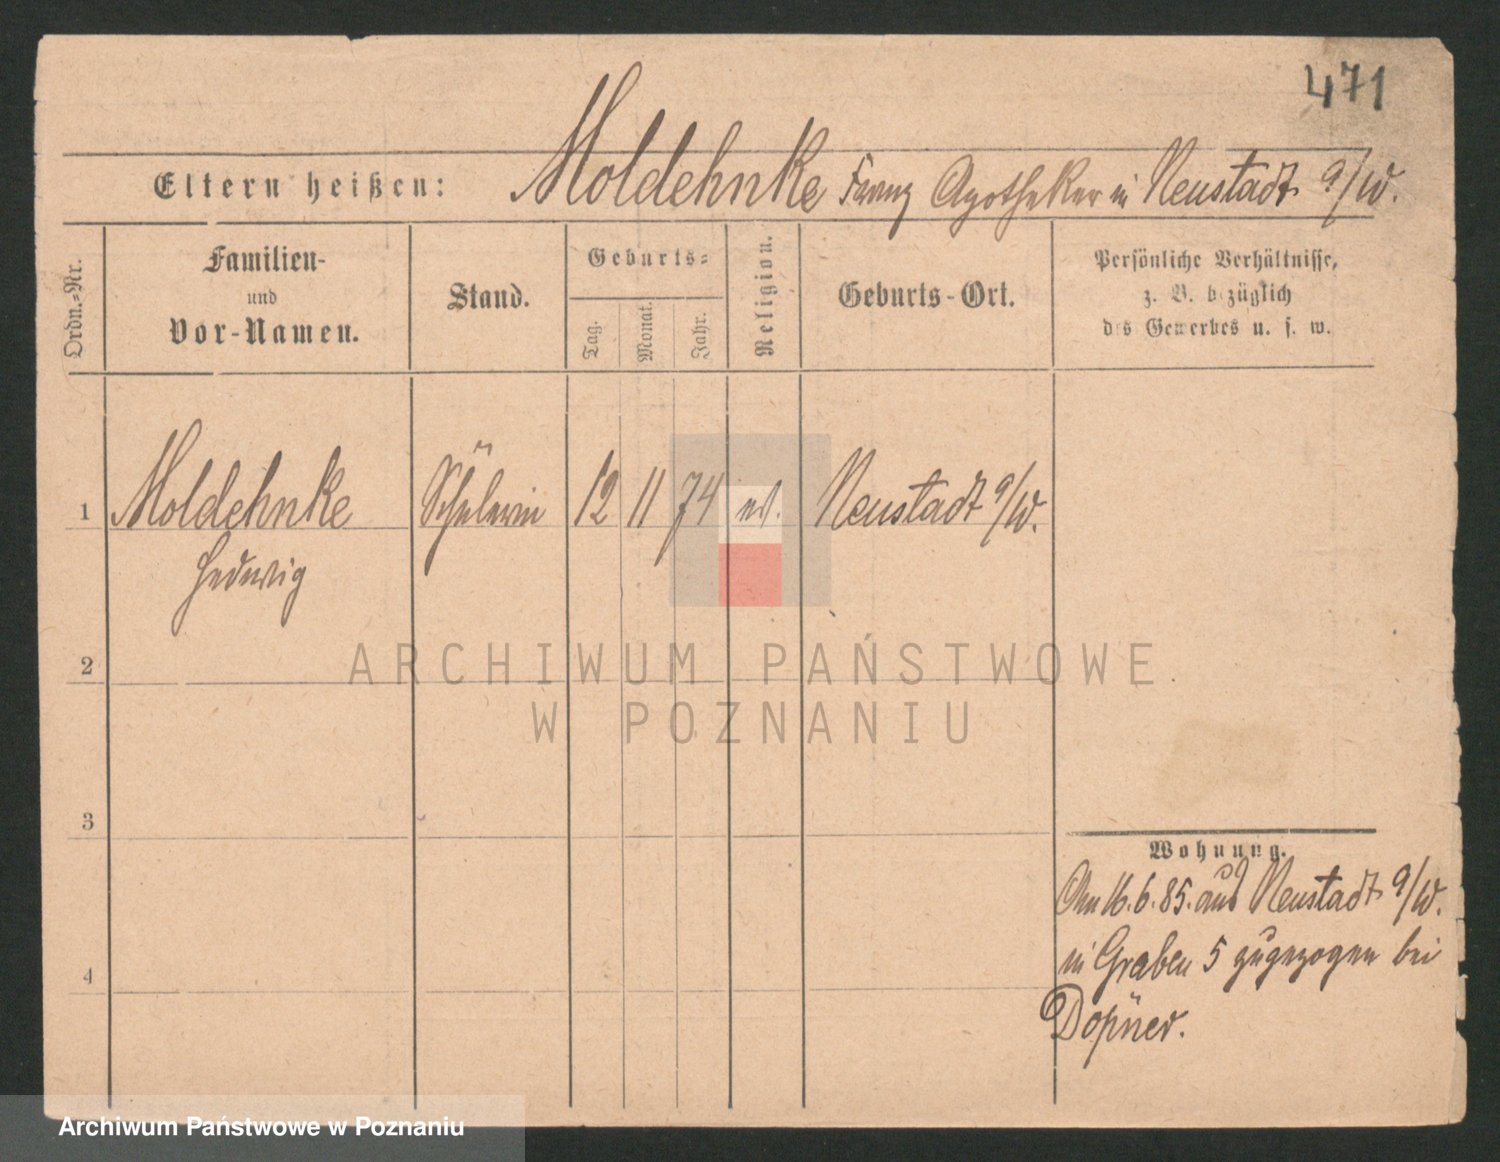 471
Eltern heißen: Moldehnke Franz Apotheker in Neustadt a/W.
Ordn.-Nr.
Familien-
und
Vor-Namen.
Stand.
Geburts-
Tag.
Monat.
Jahr.
Religion.
Geburts-Ort.
Persönliche Verhältnisse,
z. B. bezüglich
des Gewerbes u. s. w.
1 Moldehnke Schülerin 12 11 74 ev. Neustadt a/W.
Hedwig
2
ARCHIWUM PAŃSTWOWE
W POZNANIU
3
Wohnung.
Am 16.6.85. aus Neustadt a/W.
in Graben 5 zugezogen bei
4
Archiwum Państwowe w Poznaniu